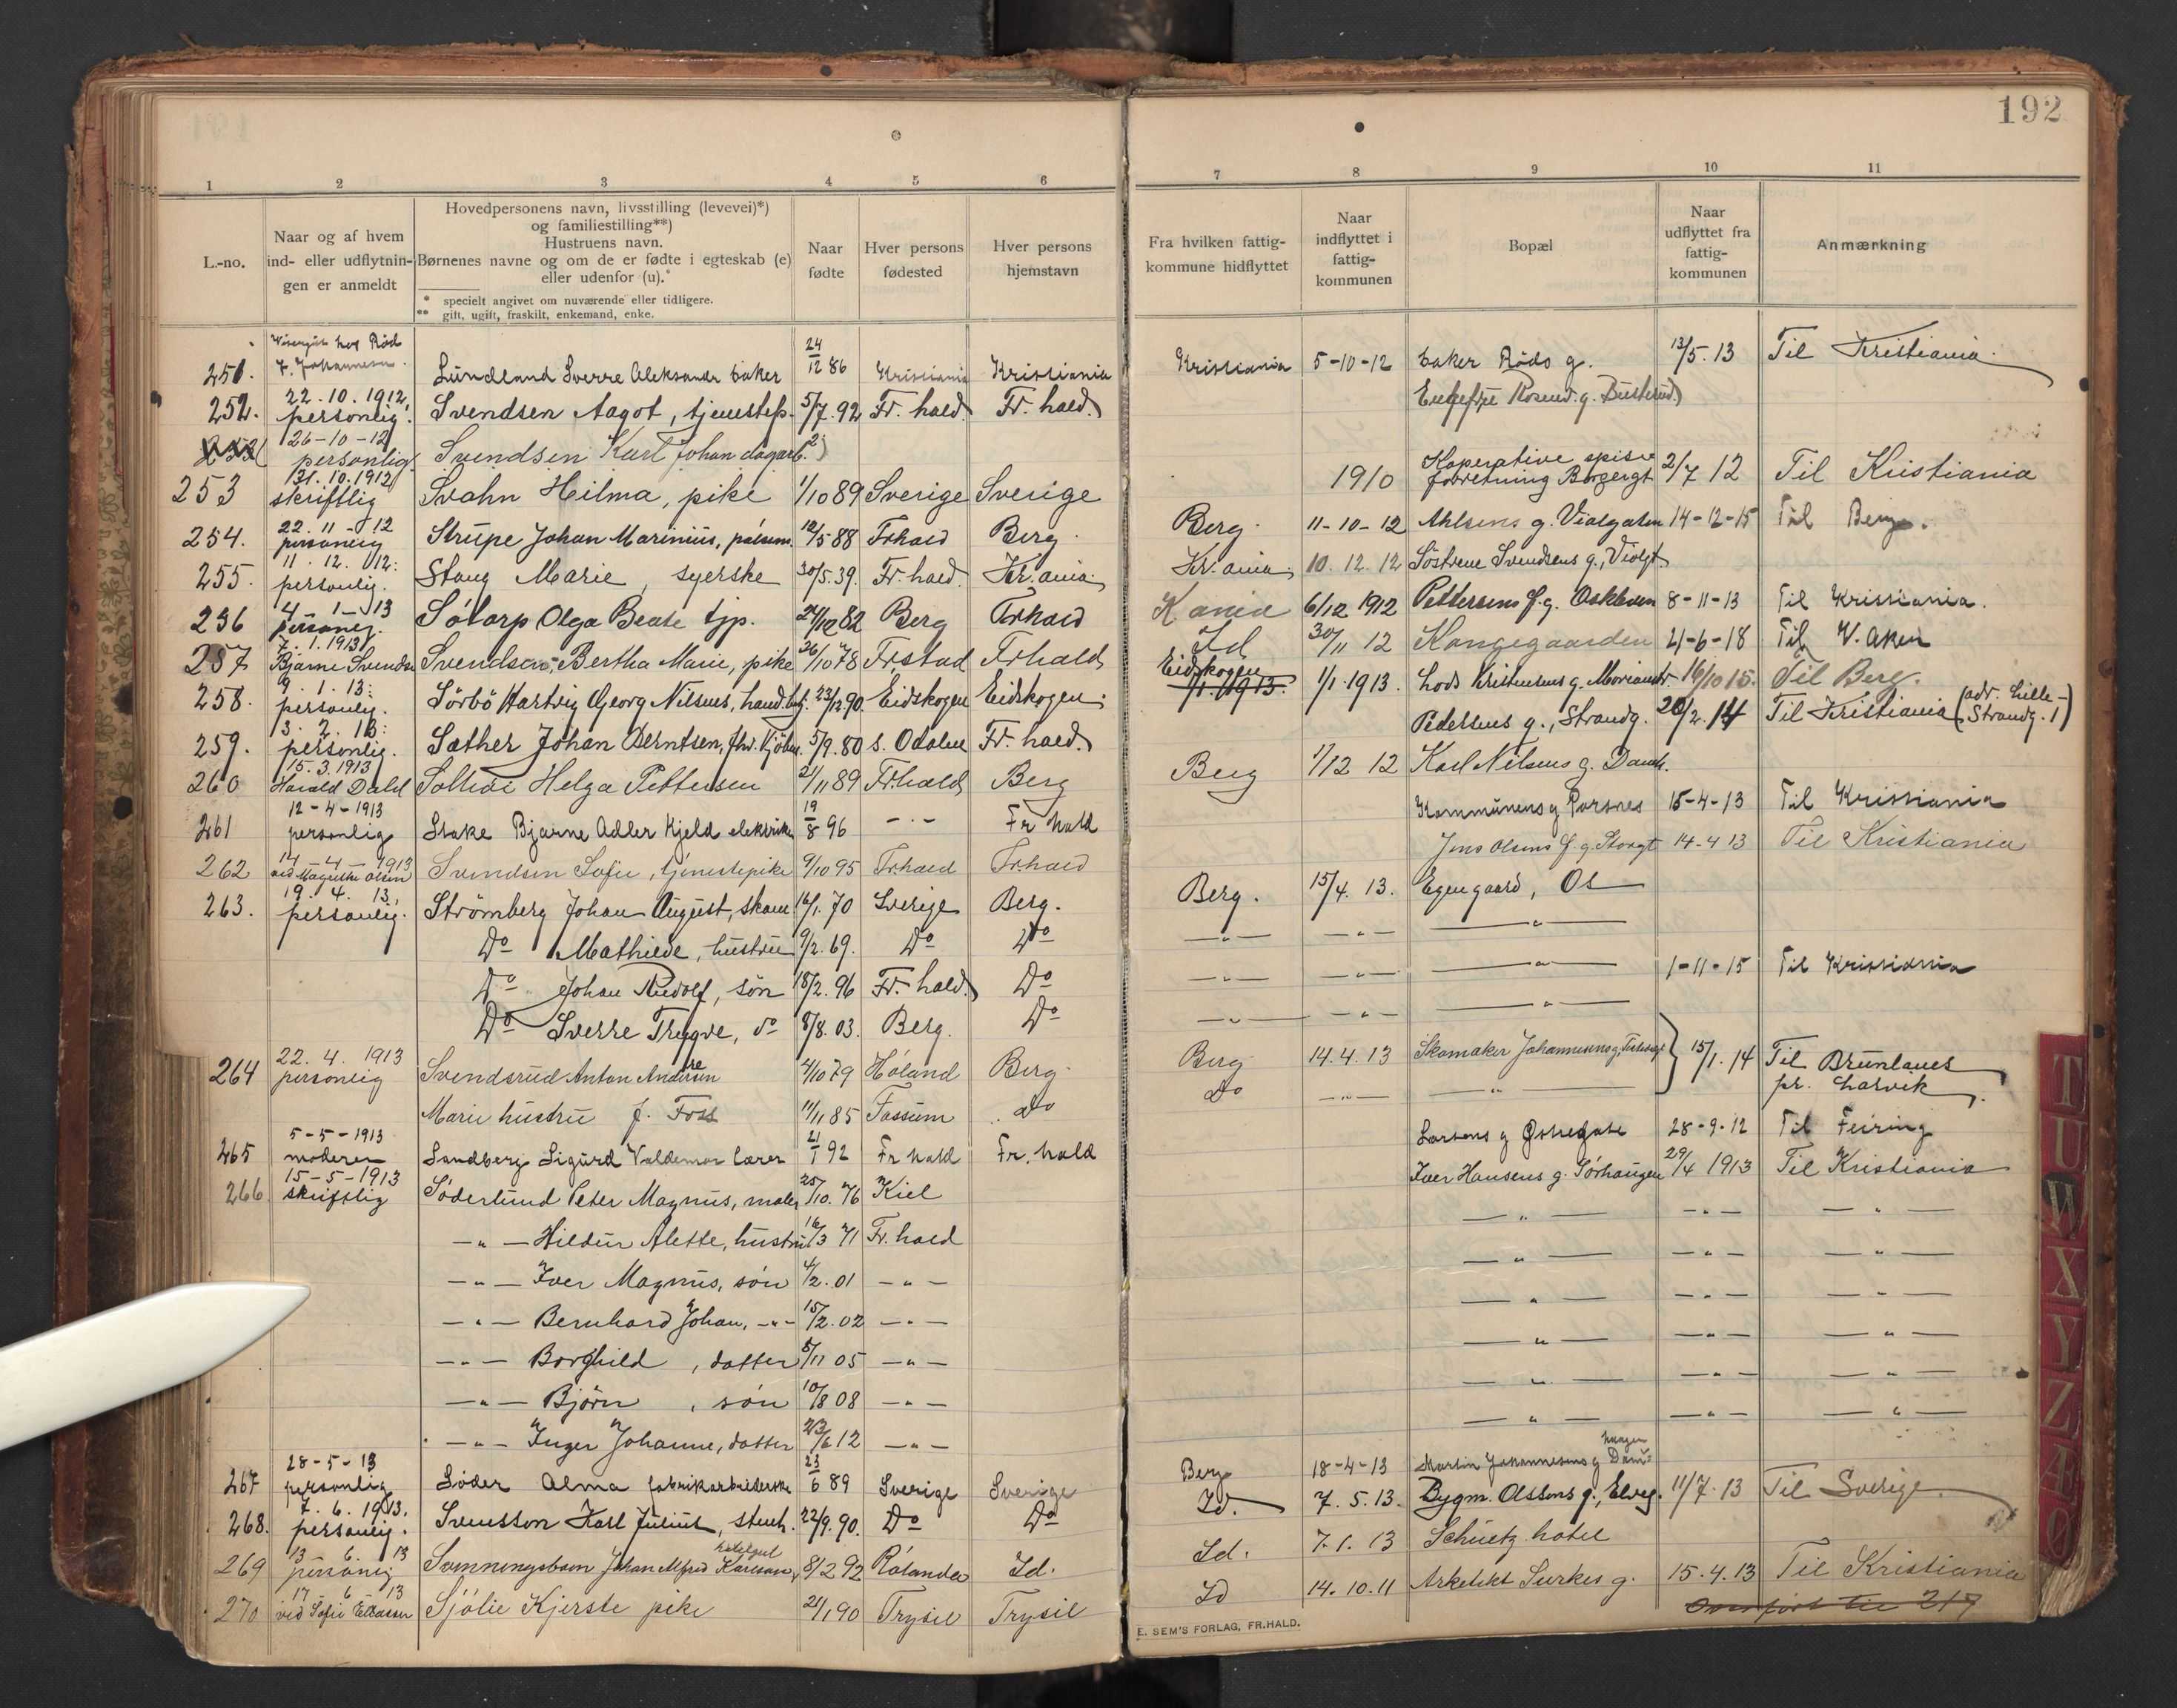 192
1 2 3 4 5 6 7 8 9 10 11
L.-no.
Naar og af hvem ind- eller udflytningen er anmeldt
Hovedpersonens navn, livsstilling (levevei)*)
og familiestilling**)
Hustruens navn.
Børnenes navne og om de er fødte i egteskab (e)
eller udenfor (u).*
* specielt angivet om nuværende eller tidligere.
** gift, ugift, fraskilt, enkemand, enke.
Naar fødte
Hver persons fødested
Hver persons hjemstavn
Fra hvilken fattigkommune hidflyttet
Naar indflyttet i fattigkommunen
Bopæl
Naar udflyttet fra fattigkommunen
Anmærkning
251. Lundland Sverre Aleksandr baker 24/12 86 Kristiania Kristiania Kristiania 5-10-12 baker Røds g. 13/5. 13 Til Kristiania.
252. 22.10.1912, personlig. Svendsen Aagot, tjenestep. 5/7. 92 Fr. hald. Fr. hald.
26-10-12 personlig Svendsen Karl Johan dagarb.
253 31.10.1912 skriftlig Svahn Hilma, pike 1/10 89 Sverige Sverige 1910 Koperative spiseforretning Borgergt 2/7 12 Til Kristiania
254. 22.11-12 personlig Strupe Johan Marinius, 12/5 88 Frhald Berg. Berg. 11-10-12 Ahlsens g. Violgaten 14-12-15 Til Berg.
255. 11.12.12: personlig. Stang Marie, syerske 30/5. 39. Fr. hald. Kr.ania. Kr.ania. 10.12.12 Söstrene Svendsens g., Violgt
256 4-1-13 personlig. Sótorp Olga Beate tjp. 24/12 82 Berg Frhald K.ania 6/12 1912 Pettersens g. Oskleven 8-11-13 Til Kristiania.
257 7.1.1913 Bjarne Svendsen Svendsen, Bertha Marie, pike 26/10 78 Fr.stad Frhald Id 30/11 12 Kongegaarden 21-6-18 Til V. Aker
258. 9.1.13: personlig. Sörbö Hartvig Georg Nilsens, 23/12 90. Eidskogen Eidskogen. Eidskogen 1/1.1913. 1/1.1913. Lods Kristensens g. 16/10 15. Til Berg.
259. 13.2.13: personlig. Sæther Johan Berntsen, 5/9. 80 S. Odalen Fr. hald. Pedersens g., Strandg. 20/2. 14 Til Kristiania (adr. Lille-Strandg. 1)
260 15.3.1913 Harald Dahl Helga Pettersen 21/11 89 Fr.hald Berg Berg 1/12 12 Karl Nilsens g. Damh.
261 12-4-1913 personlig Stake Bjarne Adler Kjeld elektriker 19/8 96 -"- Fr hald Kommunens g Porsnes 15-4-13 Til Kristiania
262 14-4-1913 Svendsen Sofie, tjenestepike 9/10 95 Frhald Frhald Jens Olsens g. Storgt 14-4 13 Til Kristiania
263. 19.4.13, personlig. Strömberg Johan August, skom. 16/1. 70 Sverige Berg. Berg. 15/4. 13. Egen gaard, Os
Do Mathilde, hustru 9/2. 69. Do Do -"- -"- -"-
Do Johan Rudolf, sön 18/2. 96 Fr. hald. Do -"- -"- -"- 1-11-15 Til Kristiania
Do Sverre Trygve, do 8/8. 03. Berg. Do -"- -"- -"-
264 22.4.1913 personlig Svendsrud Anton Andersen 4/10 79 Höland Berg. Berg 14.4.13 Skomaker Johannesens g, } 15/1. 14 Til Brunlanes
Marie hustru f. Foss 11/11 85 Fossum do do -"- -"- pr. Larvik.
265 5-5-1913 moderen Sandberg Sigurd Valdemar lærer 21/1 92 Fr hald Fr. hald Larsens g Østregate 28-9-12 Til Feiring
266. 15-5-1913 skriftlig Söderlund Peter Magnus, maler 25/10. 76 Kiel Iver Hansens g. Sörhaugen 29/4 1913 Til Kristiania
-"- Hildur Alette, hustru 16/3 71 Fr. hald -"- -"- -"-
-"- Iver Magnus, sön 4/2. 01 -"- -"- -"- -"-
-"- Bernhard Johan, -"- 15/2. 02 -"- -"- -"- -"-
-"- Borghild, datter 5/11 05 -"- -"- -"- -"-
-"- Björn, sön 10/8 08 -"- -"- -"- -"-
-"- Inger Johanne, datter 23/6 12 -"- -"- -"- -"-
267 28-5-13 personlig Søder Alma fabrikarbeiderske 23/6 89 Sverige Sverige Berg 18-4-13 Martin Johannesens g
268. 7.6.1913. personlig. Svensson Karl Julius, stenh. 22/9. 90. Do Do Id. 7.5.13. Bygm. Olssons g., Elveg. 11/7.13 Til Sverige.
269 13 6 13 personlig Johan Alfred Karlsson, 8/2 92 Id. Id. 7.1.13 Schuetz hotel
270 17 6 13 ved Sofie Eliassen Sjólie Kjerste pike 21/1 90 Trysil Trysil Id 14.10.11 Arkitekt Surkes g. 15.4.13 Til Kristiania
Overført til 217
E. SEM'S FORLAG, FR.HALD.
T
U
W
X
Y
Z
Æ
Ø